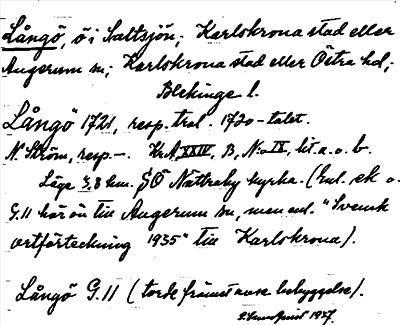 Långö, ö i Saltsjön; Karlskrona stad eller
Augerum sn; Karlskrona stad eller Östra hd;
Blekinge l.
Långö 1721, resp. trol. 1720-talet.
N. Ström, resp.–. KrA, XXIV, B, No IX, lit a. o. b.
Läge 3,8 km. SÖ Nättraby kyrka. (Enl. ek o.
G.11 hör ön till Augerum sn, men enl. "Svensk
ortförteckning 1935" till Karlskrona).
Långö G.11 (torde främst avse bebyggelse).
1937